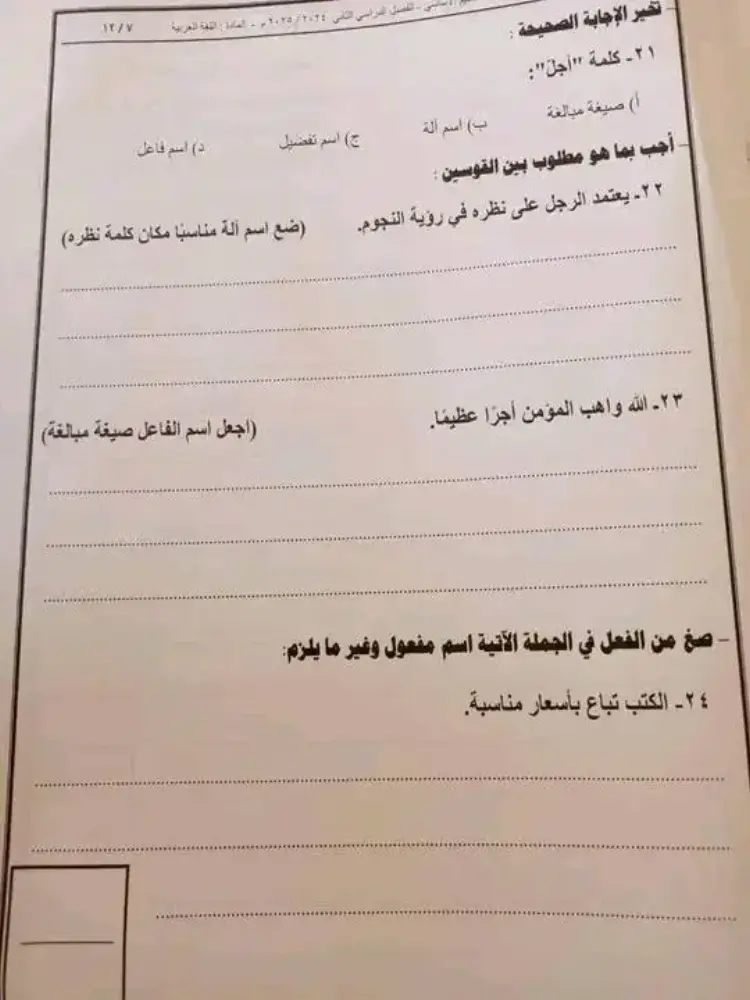 الأساسي - الفصل الدراسي الثاني ٢٠٢٥/٢٠٢٤ م - المادة: اللغة العربية ١٢/٧
تخير الإجابة الصحيحة :
٢١- كلمة "أجلّ":
أ) صيغة مبالغة ب) اسم آلة ج) اسم تفضيل د) اسم فاعل
- أجب بما هو مطلوب بين القوسين :
٢٢- يعتمد الرجل على نظره في رؤية النجوم. (ضع اسم آلة مناسبًا مكان كلمة نظره)
٢٣- الله واهب المؤمن أجرًا عظيمًا. (اجعل اسم الفاعل صيغة مبالغة)
- صغ من الفعل في الجملة الآتية اسم مفعول وغير ما يلزم:
٢٤- الكتب تباع بأسعار مناسبة.